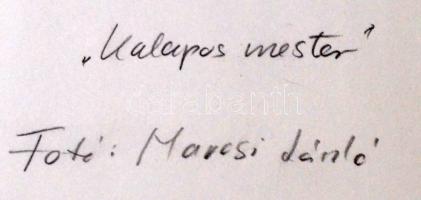 „Kalapos mester”
darabanth
Fotó: Marcsi László